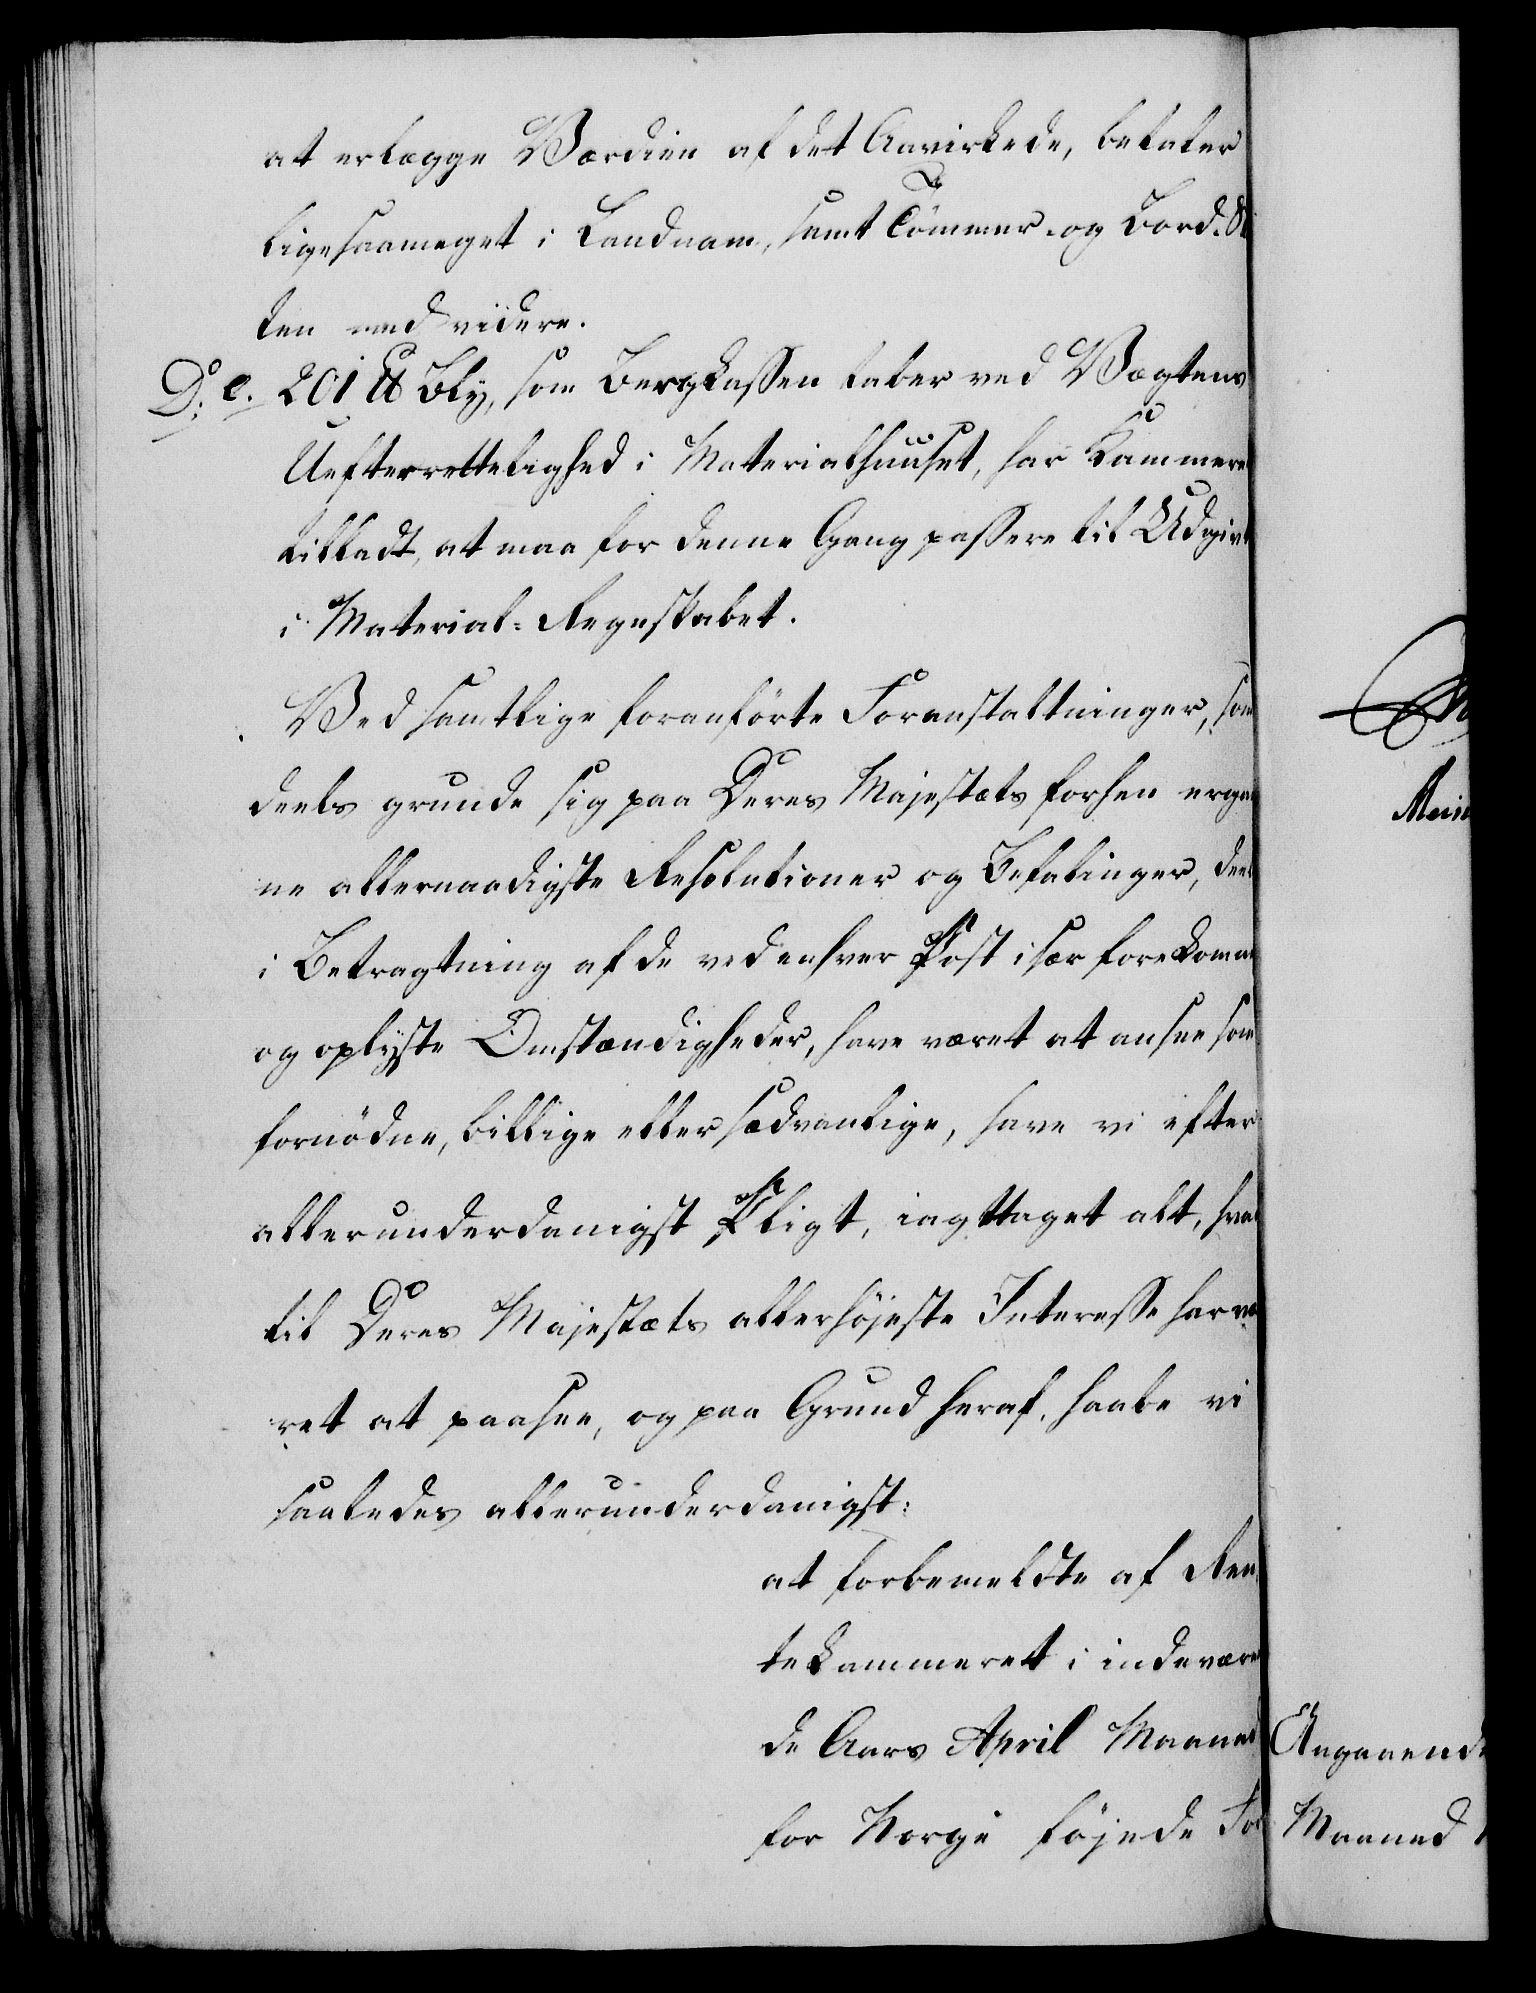 at erlægge Værdien af det Aavirkede, betaler
ligesaameget i Landnam, samt Tömmer- og Bord-
ten med videre.
D: e. 201 ℔ Bly, som Bergkassen taber ved Vægtens
Uefterrettelighed i Materialhuuset, har Kammeret
tilladt, at maa for denne Gang passere til Udgivt
i Material-Regnskabet.
Ved samtlige foranförte Foranstaltninger, som
deels grunde sig paa Deres Majestæts forhen ergan
ne allernaadigste Resolutioner og Befalinger, deels
i Betragtning af de ved enhver Post især forekomne
og oplyste Omstændigheder, have været at ansee som
fornödne, billige eller sædvanlige, have vi efter
allerunderdanigst Pligt, iagttaget alt, hvad
til Deres Majestæts allerhöjeste Interesse har væ
ret at paasee, og paa Grund heraf, haabe vi
saaledes allerunderdanigst:
at forbemeldte af Ren
tekammeret i indeværen
de Aars April Maaned
for Norge föjede For
Angaaende
Maaned